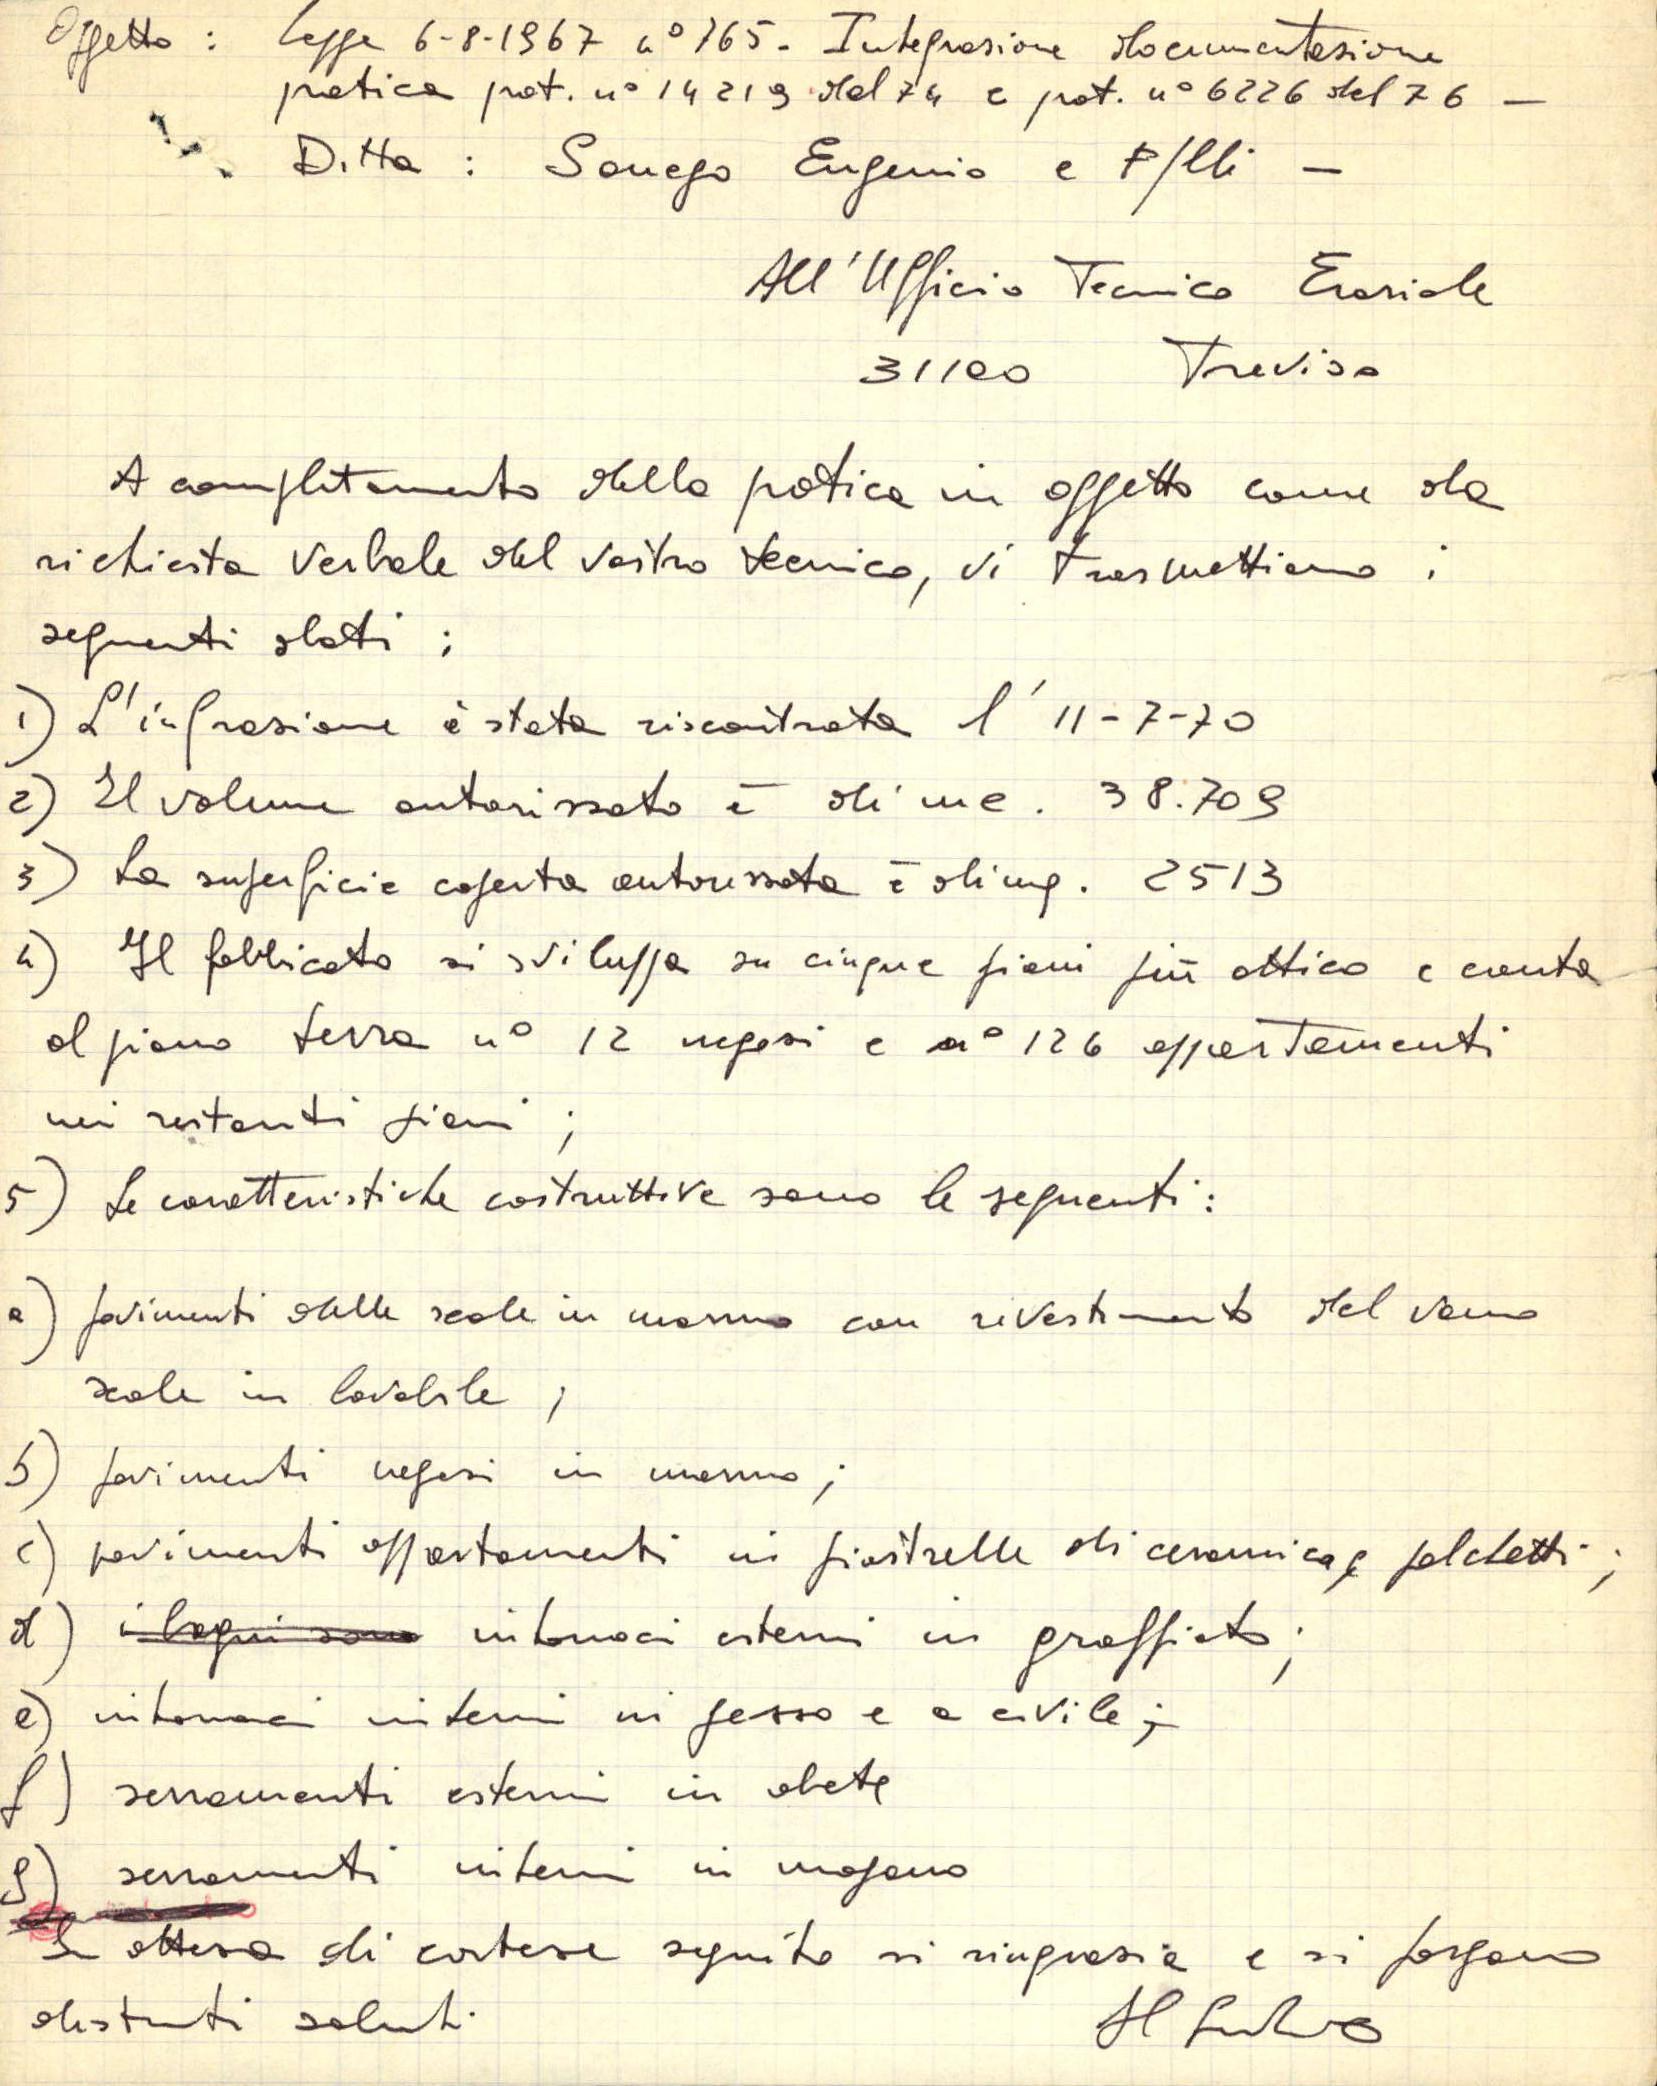 Oggetto : Legge 6-8-1967 n° 765. Integrazione documentazione
pratica prot. n° 14219 del 74 e prot. n° 6226 del 76 —
Ditta : Sonego Eugenio e F/lli —
All'Ufficio Tecnico Erariale
31100 Treviso
A completamento della pratica in oggetto come da
richiesta verbale del vostro tecnico, vi trasmettiamo i
seguenti dati ;
1) L'infrazione è stata riscontrata l' 11-7-70
2) Il volume autorizzato è di mc. 38.709
3) La superficie coperta autorizzata è di mq. 2513
4) Il fabbricato si sviluppa su cinque piani più attico e conta
al piano terra n° 12 negozi e n° 126 appartamenti
nei restanti piani ;
5) Le caratteristiche costruttive sono le seguenti :
a) pavimenti delle scale in marmo con rivestimento del vano
scale in lavabile ;
b) pavimenti negozi in marmo ;
c) pavimenti appartamenti in piastrelle di ceramica e palchetti ;
d) i bagni sono intonaci esterni in graffiato ;
e) intonaci interni in gesso e a civile ;
f) serramenti esterni in abete
g) serramenti interni in mogano
In attesa di cortese seguito si ringrazia e si porgono
distinti saluti.
Il